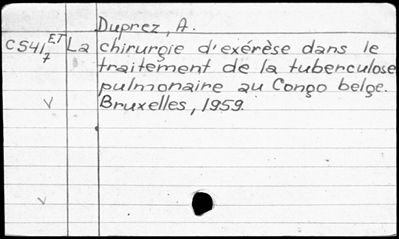 Duprez, A.
CS41 ET 7 La chirurgie d'exérèse dans le
traitement de la tuberculose
pulmonaire au Congo belge.
V Bruxelles, 1959.
V